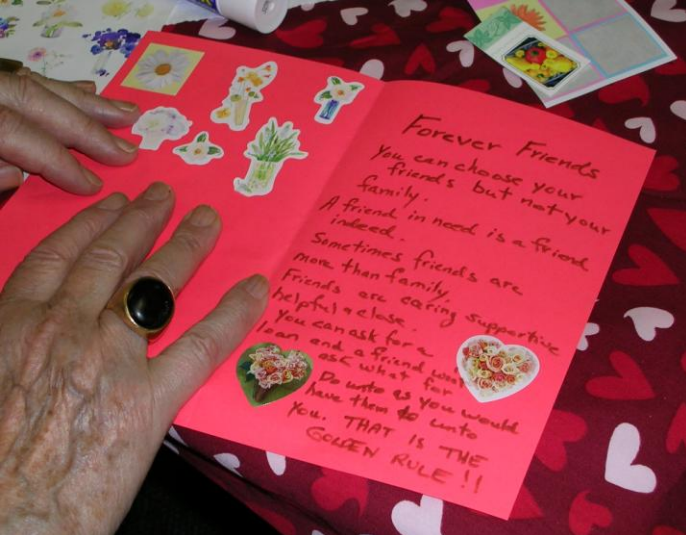 Forever Friends
You can choose your
friends but not your
family.
A friend in need is a friend
indeed.
Sometimes friends are
more than family.
Friends are caring supportive
helpful & close.
You can ask for a
loan and a friend wont
ask what for
Do unto as you would
have them to unto
you. THAT IS THE
GOLDEN RULE!!